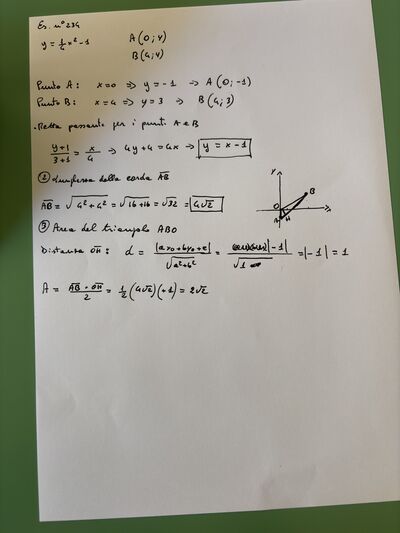 Es. n° 234
y = 1/4 x² - 1 A (0; y)
B (4; y)
Punto A: x = 0 => y = -1 => A (0; -1)
Punto B: x = 4 => y = 3 => B (4; 3)
· Retta passante per i punti A e B
(y+1)/(3+1) = x/4 => 4y + 4 = 4x => y = x - 1
② Lunghezza della corda AB
AB = √(4² + 4²) = √(16 + 16) = √32 = 4√2
③ Area del triangolo ABO
Distanza OH: d = |ax₀ + by₀ + c| / √(a² + b²) = |-1| / √1 = |-1| = 1
A = (AB · OH)/2 = 1/2 (4√2) (+1) = 2√2
y
B
O
H
A
x